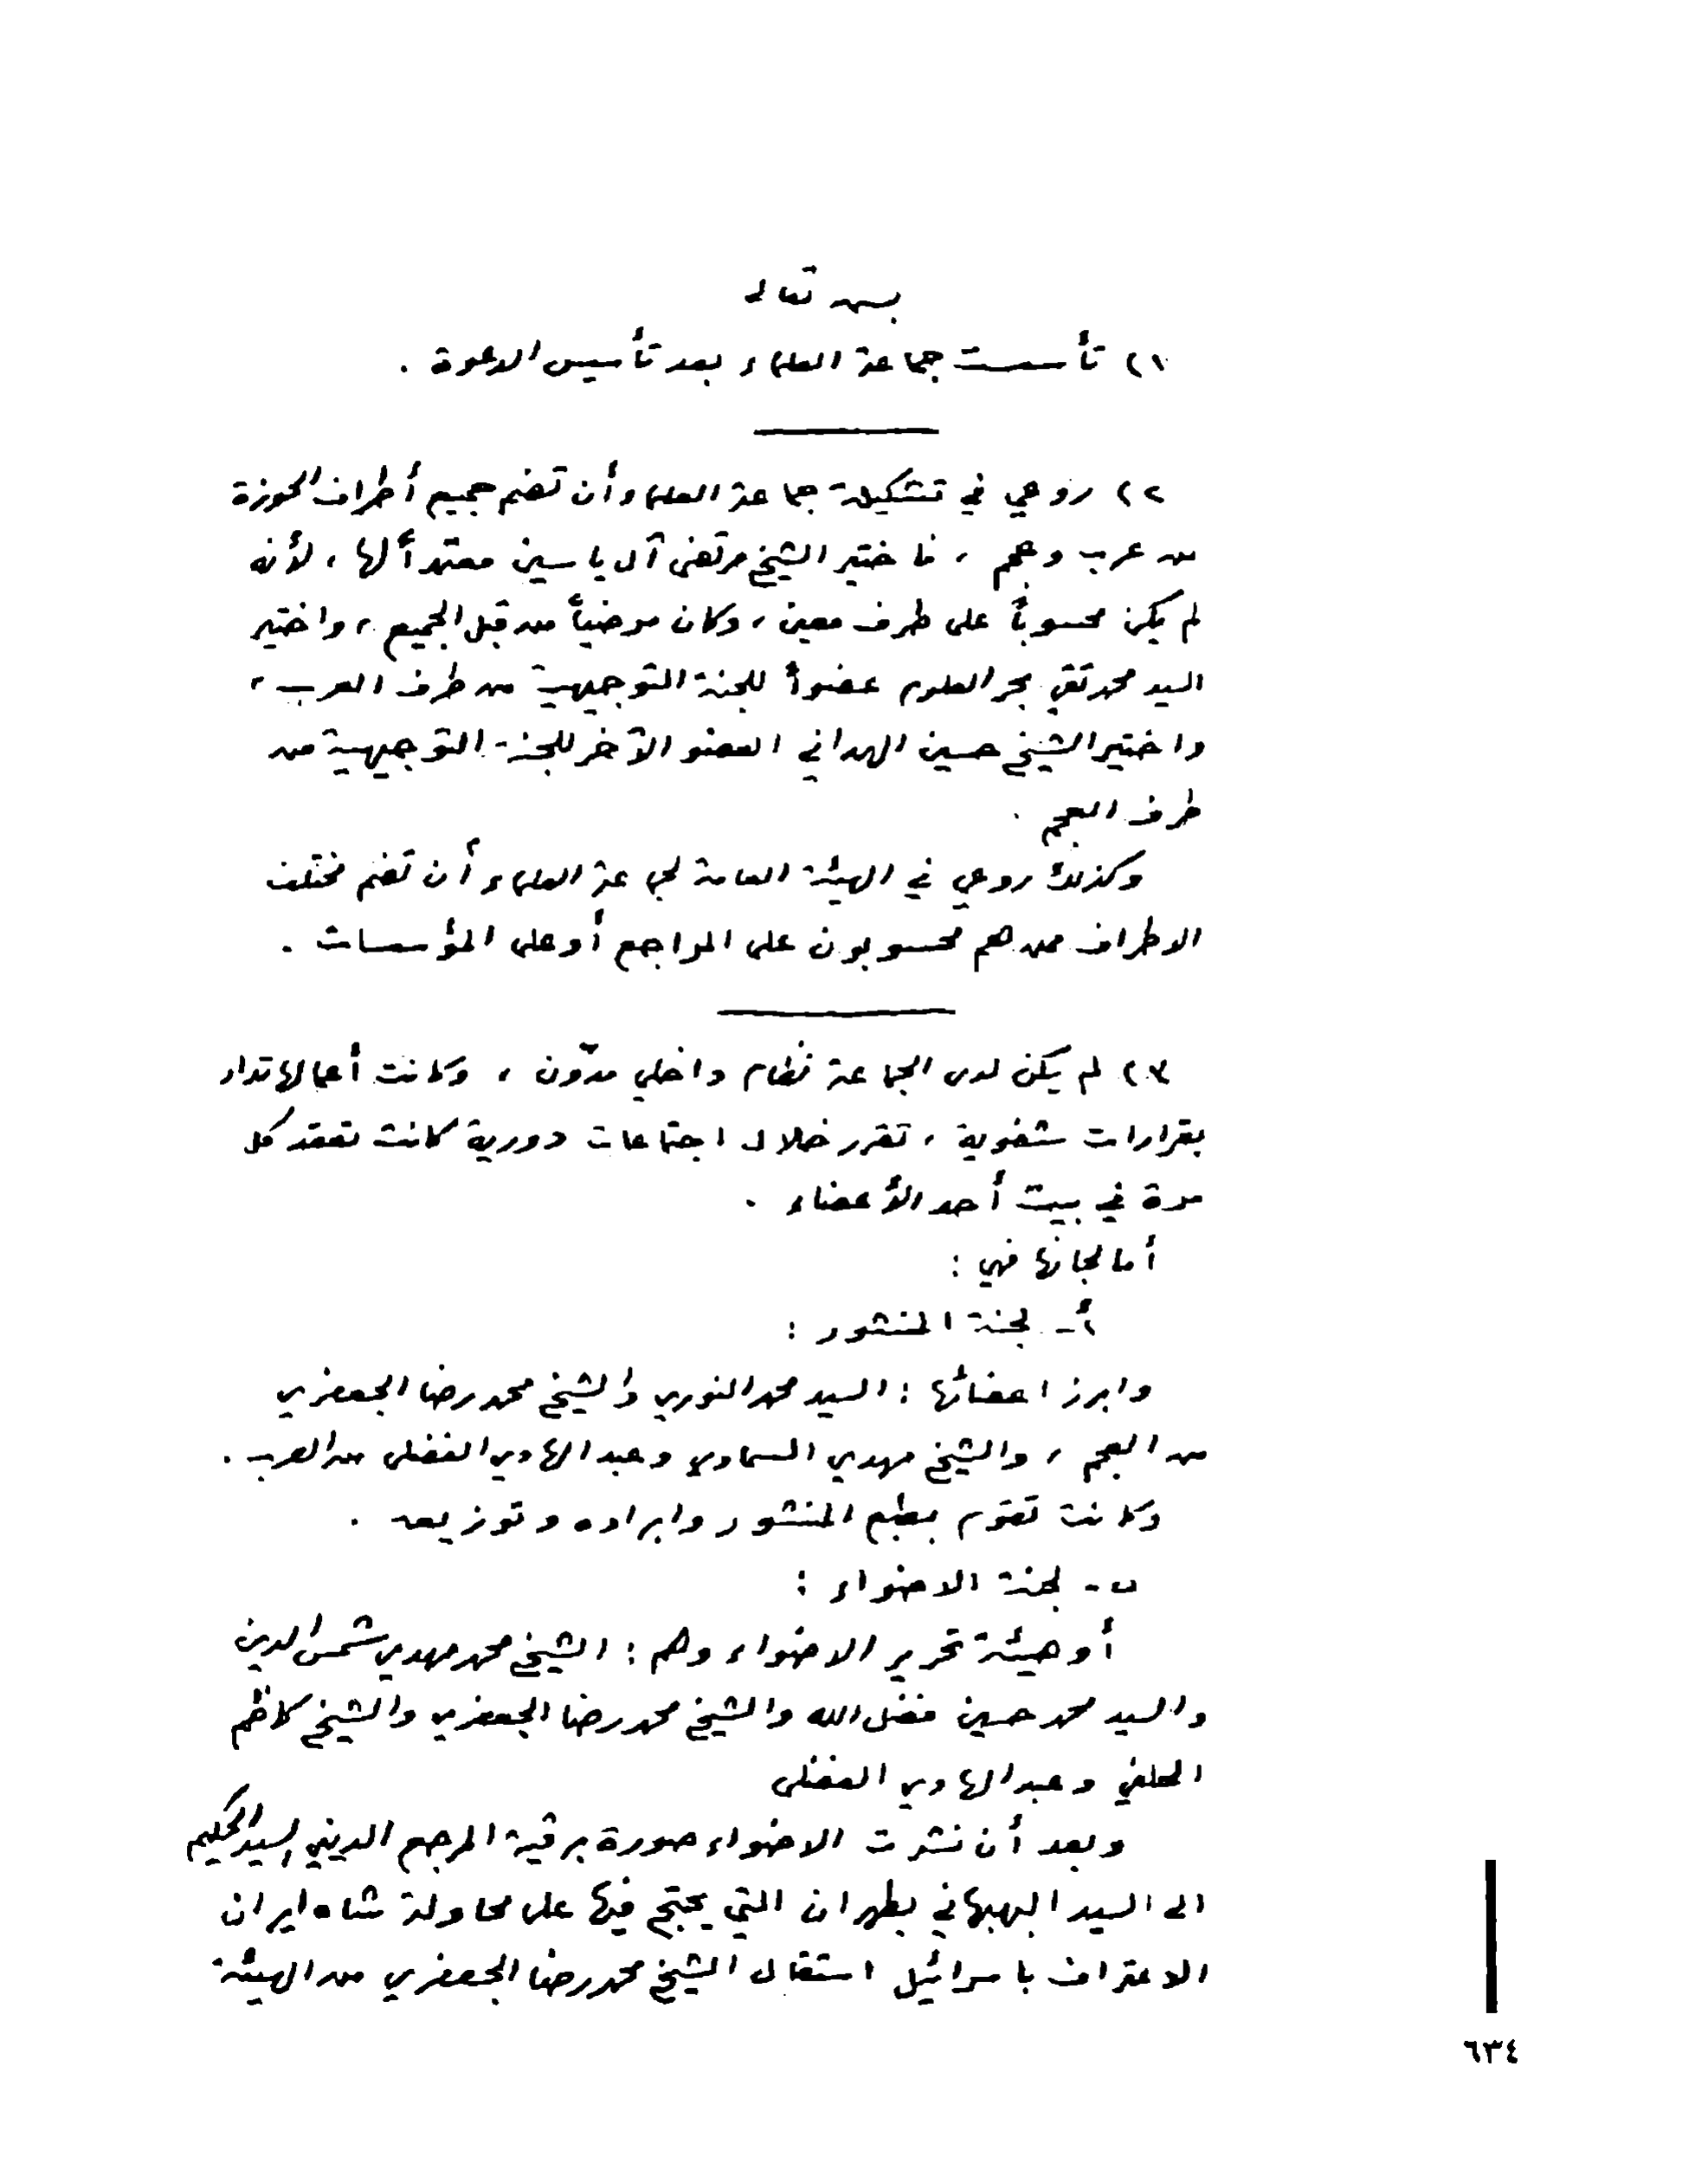 بسمه تعالى
١) تأسست جماعة العلماء بعد تأسيس الدعوة .
٢) روعي في تشكيلة جماعة العلماء أن تضم جميع أطراف الحوزة
من عرب وعجم ، فاختير الشيخ مرتضى آل ياسين معتمداً لها ، لأنه
لم يكن محسوباً على طرف معين ، وكان مرضياً من قبل الجميع ، واختير
السيد محمد تقي بحر العلوم عضواً للجنة التوجيهية من طرف العرب ،
واختير الشيخ حسين الهمداني العضو الآخر للجنة التوجيهية من
طرف العجم .
وكذلك روعي في الهيئة العامة لجماعة العلماء أن تضم مختلف
الاطراف ممن هم محسوبون على المراجع أو على المؤسسات .
٣) لم يكن لدى الجماعة نظام داخلي مدوّن ، وكانت أعمالها تدار
بقرارات شفوية ، تقرر خلال اجتماعات دورية كانت تعقد كل
مرة في بيت أحد الأعضاء .
أما لجانها فهي :
أ - لجنة المنشور :
وابرز اعضائها : السيد محمد النوري والشيخ محمد رضا الجعفري
من العجم ، والشيخ مهدي السماوي وعبد الهادي الفضلي من العرب .
وكانت تقوم بطبع المنشور وايراده وتوزيعه .
ب - لجنة الاضواء :
أو هيئة تحرير الاضواء وهم : الشيخ محمد مهدي شمس الدين
والسيد محمد حسين فضل الله والشيخ محمد رضا الجعفري والشيخ كاظم
الحلفي وعبد الهادي الفضلي
وبعد أن نشرت الاضواء صورة برقية المرجع الديني السيد الحكيم
الى السيد البهبهاني بطهران التي يحتج فيها على محاولة شاه ايران
الاعتراف باسرائيل استقال الشيخ محمد رضا الجعفري من الهيئة
٦٣٤